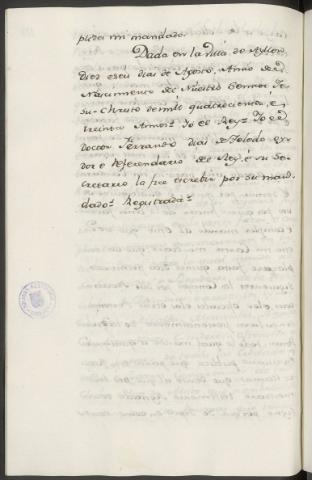 mi mandado.
Dada en la Villa de Ayllon,
diez e seis dias de Agosto, Año del
Nascimiento de Nuestro Sennor Je-
su-Christo de mill quatrocientos, e
treinta Annos= Yo el Rey= Yo el
Doctor Ferrando dias de Toledo oy-
dor e Referendario del Rey, e su Se-
cretario la fice escrebir por su man-
dado= Registrada=